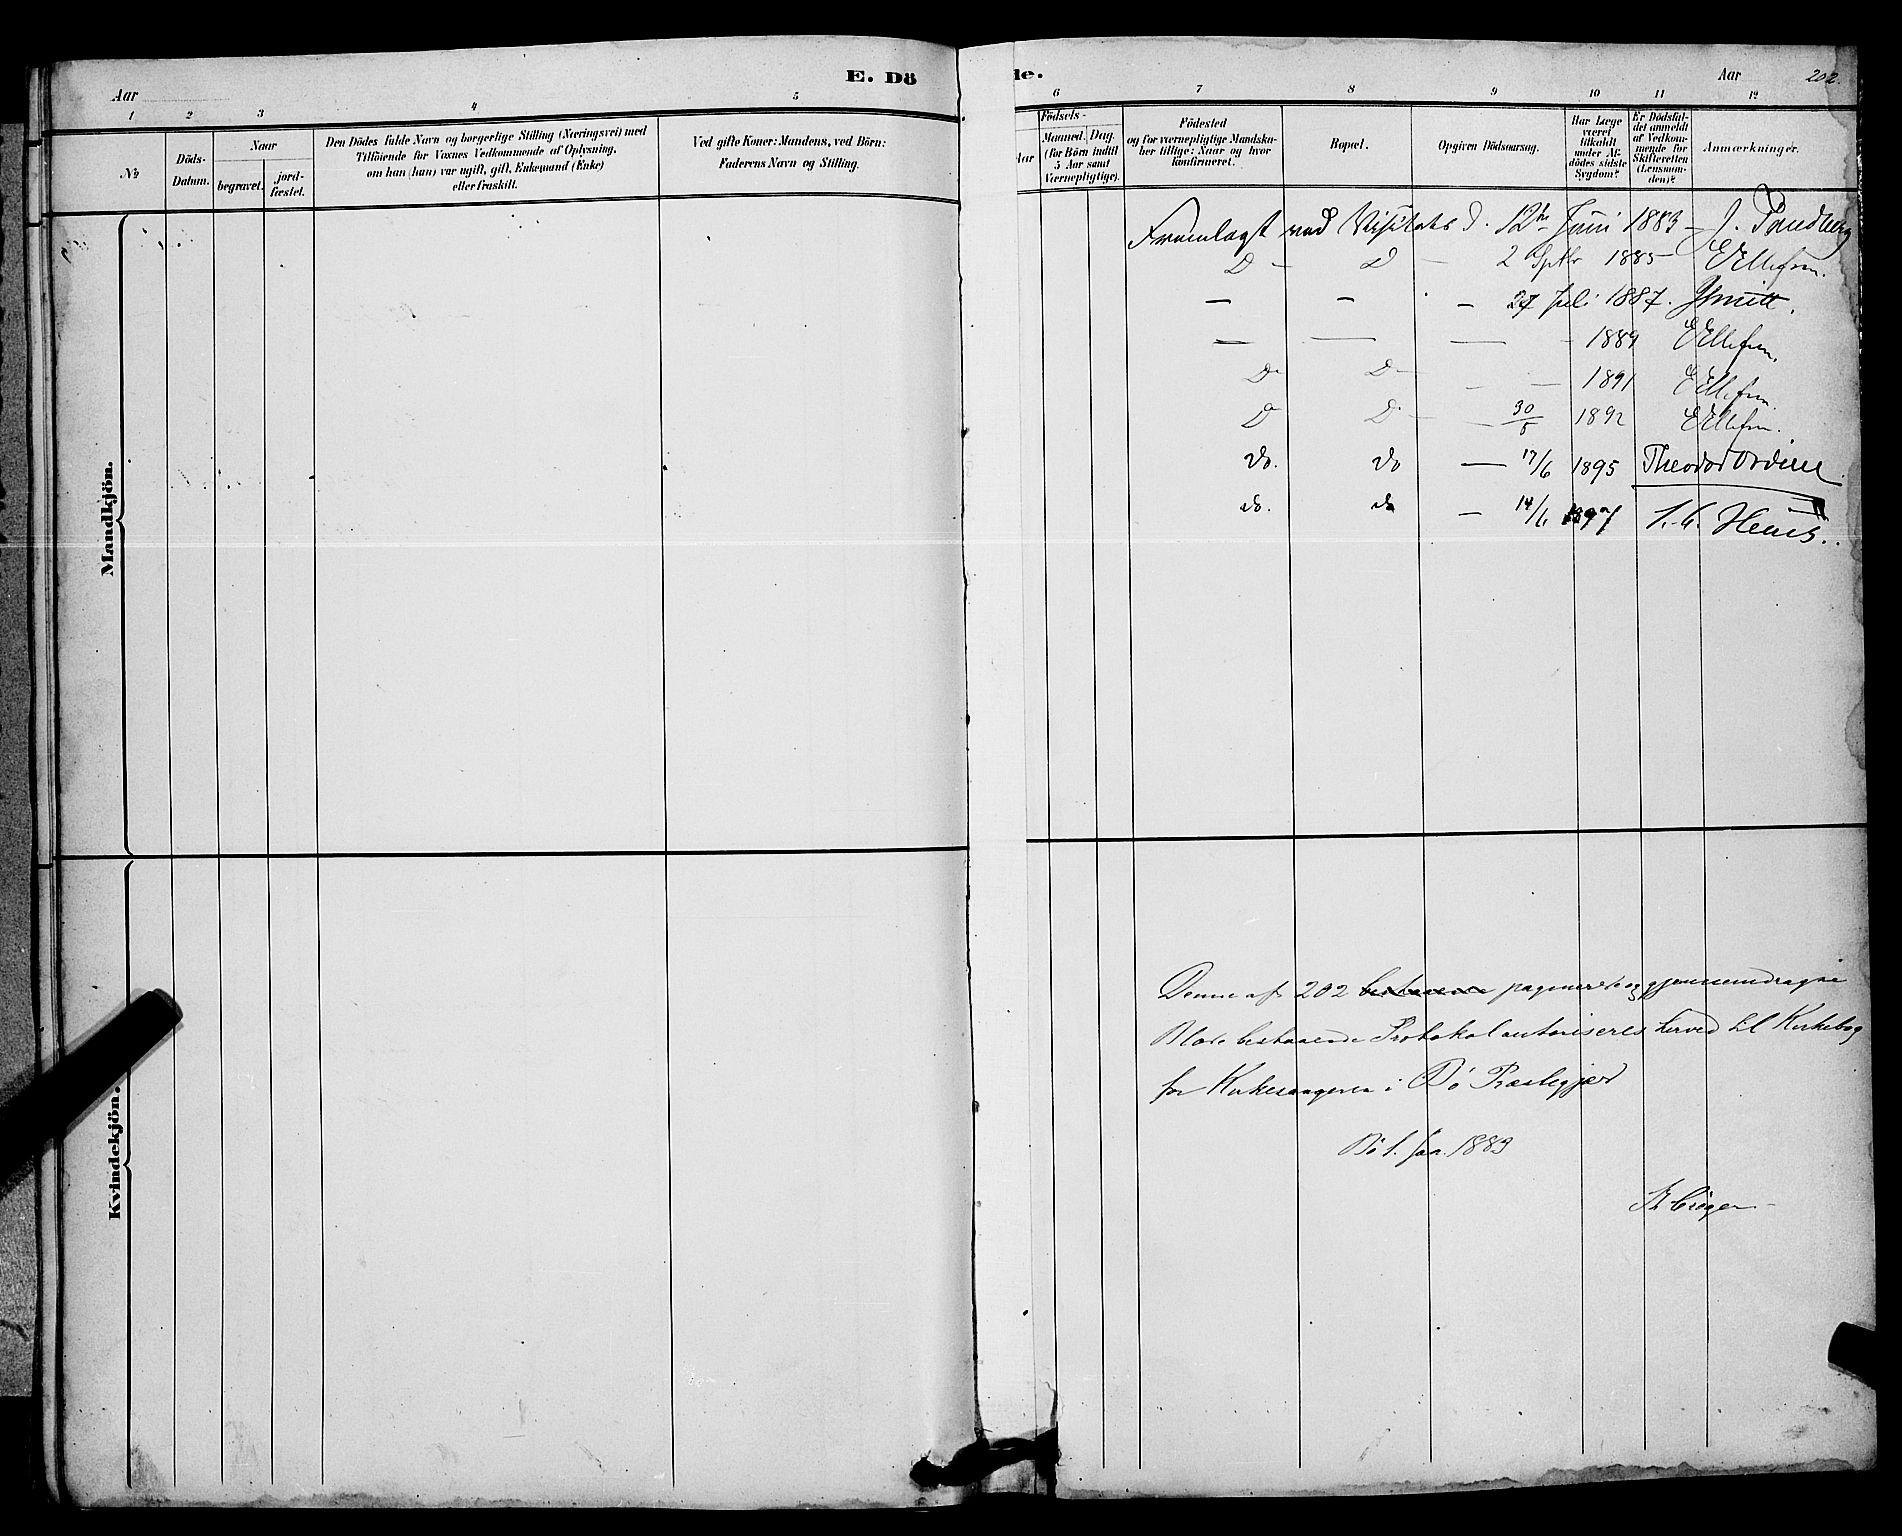 E. Dö
Aar
1 2 3 4 5
No
Döds-Datum.
Naar
begravet. jord-fæstet.
Den Dödes fulde Navn og borgerlige Stilling (Næringsvei) med
Tilföiende for Voxnes Vedkommende af Oplysning,
om han (hun) var ugift, gift, Enkemand (Enke)
eller fraskilt.
Ved gifte Koner: Mandens, ved Börn:
Faderens Navn og Stilling.
Mandkjön.
Kvindekjön.
de.
Aar 202.
6 7 8 9 10 11 12
Födsels-
Aar Maaned. Dag.
(for Börn indtil
5 Aar samt
Værnepligtige).
Födested
og for værnepligtige Mandska-
ber tillige: Naar og hvor
konfirmeret.
Bopæl.
Opgiven Dödsaarsag.
Har Læge
været
tilkaldt
under Af-
dödes sidste
Sygdom?
Er Dödsfal-
det anmeldt
af Vedkom-
mende for
Skifteretten
(Lensman-
den)?
Anmærkninger.
Fremlagt ved Visitats d. 12te Juni 1883 – J. Sandberg
D – D – 2 Sptbr 1885 – EEllefsen.
— — — 27 Juli 1887.
— — — - 1889 EEllefsen.
Do D – — — 1891 EEllefsen.
Do D. — 30/5 1892 EEllefsen.
Do. Do — 17/6 1895
do. do — 14/6 1897
Denne af 202 bestaaende paginerede og gjennemdragne
Blade bestaaende Protokol autoriseres herved til Kirkebog
for Kirkesangeren i Bö Præstegjæld
Bö 1. Jan. 1883